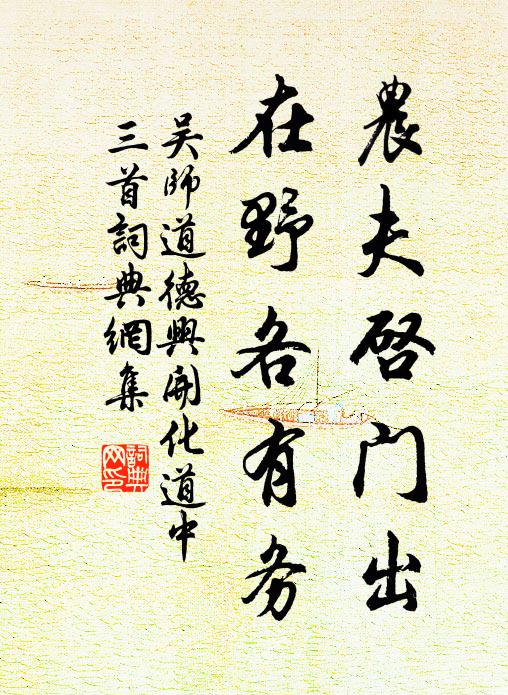 農夫啓门出
在野各有务
吴師道德興開化道中
三首詞典網集
詞典
网印